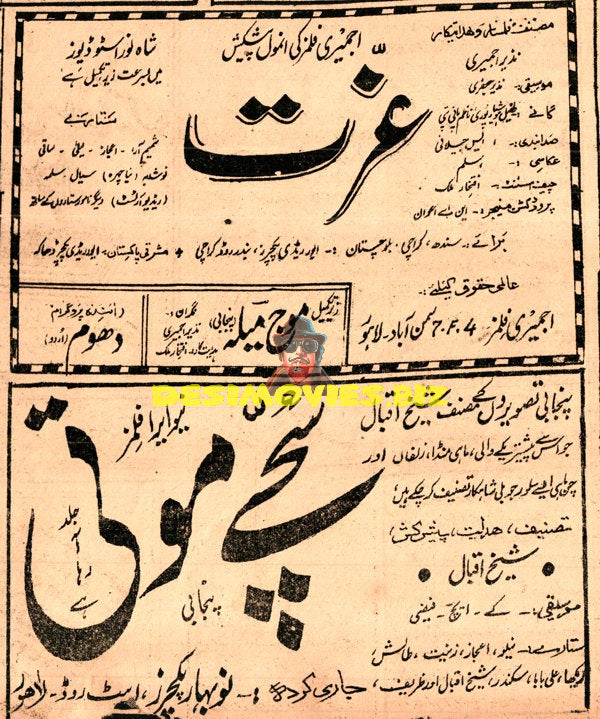 مصنفت فلمساز و ھدایتکار
نذیر اجمیری
موسیقی:۔ نذیر جعفری
گانے
صدابندی:۔ انیس جیلانی
عکاسی:۔ اسلم
چیف اسسٹنٹ:۔ افتخار ملک
پروڈکشن منیجر:۔ این اے اعوان
اجمیری فلمز کی انمول پیشکش
عزّت
شاہ نور اسٹوڈیوز
میں بسرعت زیر تکمیل ہے
ستارے
شمیم آرا۔ اعجاز۔ لیلیٰ۔ ساقی
نوشابہ (نیا چہرہ) سیال۔ سلمہ
(ریڈیو آرٹسٹ) دیگر نامور ستاروں کے ساتھ
برائے:۔ سندھ، کراچی، بلوچستان:۔ ایور ریڈی پکچرز، بندر روڈ کراچی • مشرقی پاکستان:۔ ایور ریڈی پکچرز ڈھاکہ
عالمی حقوق کیلئے:۔
اجمیری فلمز 4۔F۔7 سمن آباد۔ لاہور
زیر تکمیل
موج میلہ
(پنجابی)
نگران:۔
نذیر اجمیری
ہدایتکار۔ افتخار ملک
(آئندہ پروگرام)
دھوم
(اردو)
DESIMOVIES.BIZ
پنجابی تصویروں کے مصنف شیخ اقبال
جو اس سے پیشتر یکے والی، ماہی منڈا، زلفاں اور
چن ماہی ایسے سلور جوبلی شاہکار تصنیف کر چکے ہیں
تصنیف، ھدایت، پیشکش
• شیخ اقبال •
موسیقی:۔ کے۔ ایچ۔ فیضی
ستارے:۔ نیلو، اعجاز، زینت، طالش
ریکھا، علی بابا، سکندر، شیخ اقبال اور ظریف،
یو ایرا فلمز
سچّے موتی
پنجابی
جلد
آ
رہا
ہے
جاری کردہ:۔ نو بہار پکچرز، ایبٹ روڈ۔ لاہور